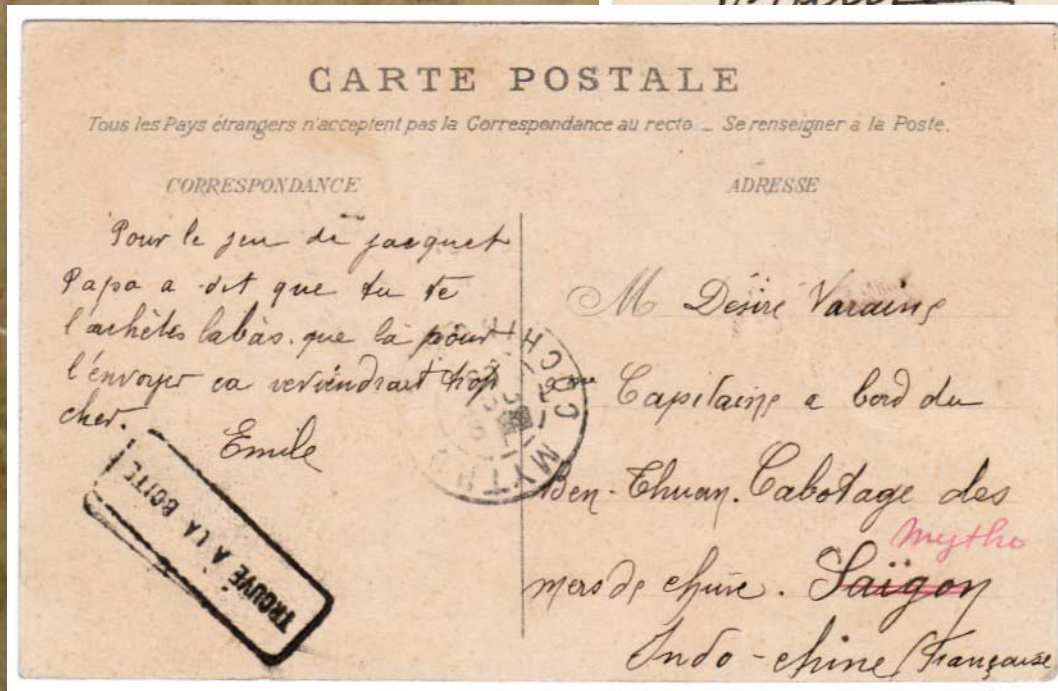 CARTE POSTALE
Tous les Pays étrangers n'acceptent pas la Correspondance au recto _ Se renseigner à la Poste.
CORRESPONDANCE
Pour le jeu de jacquet
Papa a dit que tu te
l'achètes labàs. que là pour
l'envoyer ca reviendrait trop
cher.
Emile
TROUVÉ A LA BOITE
MYTHO
COCHIN
ADRESSE
M Désiré Varaing
2me Capitaine a bord du
Ben-Thuan. Cabotage des
Mytho
mers de chine. Saïgon
Indo-chine Française